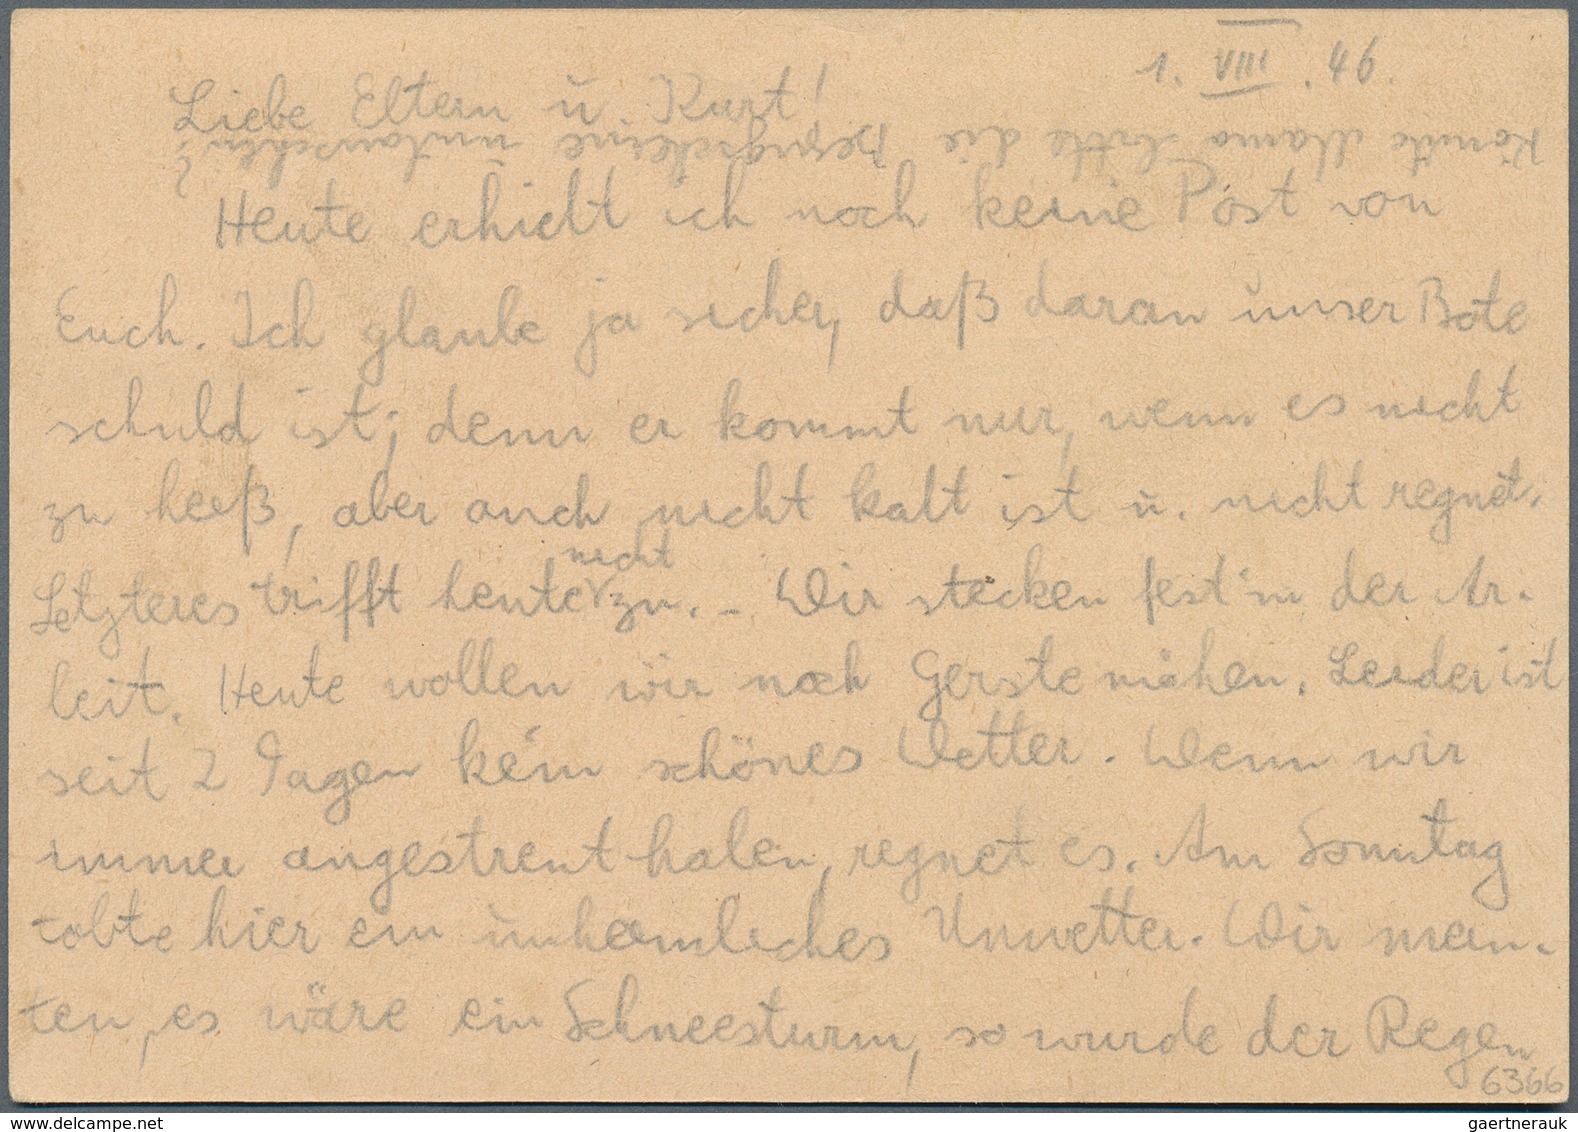 1. VIII. 46.
Liebe Eltern u Kurt!
Könnte Mama bitte die Bezugscheine umtauschen?
Heute erhielt ich noch keine Post von
Euch. Ich glaube ja sicher, daß daran unser Bote
schuld ist; denn er kommt nur, wenn es nicht
zu heiß, aber auch nicht kalt ist u. nicht regnet.
Letzteres trifft heute nicht zu. – Wir stecken fest in der Ar-
beit. Heute wollen wir noch Gerste mähen. Leider ist
seit 2 Tagen kein schönes Wetter. Wenn wir
immer angestrent haben, regnet es. Am Sonntag
tobte hier ein unheimliches Unwetter. Wir mein-
ten, es wäre ein Schneesturm, so wurde der Regen
6366
www.delcampe.net
gaertnerauk